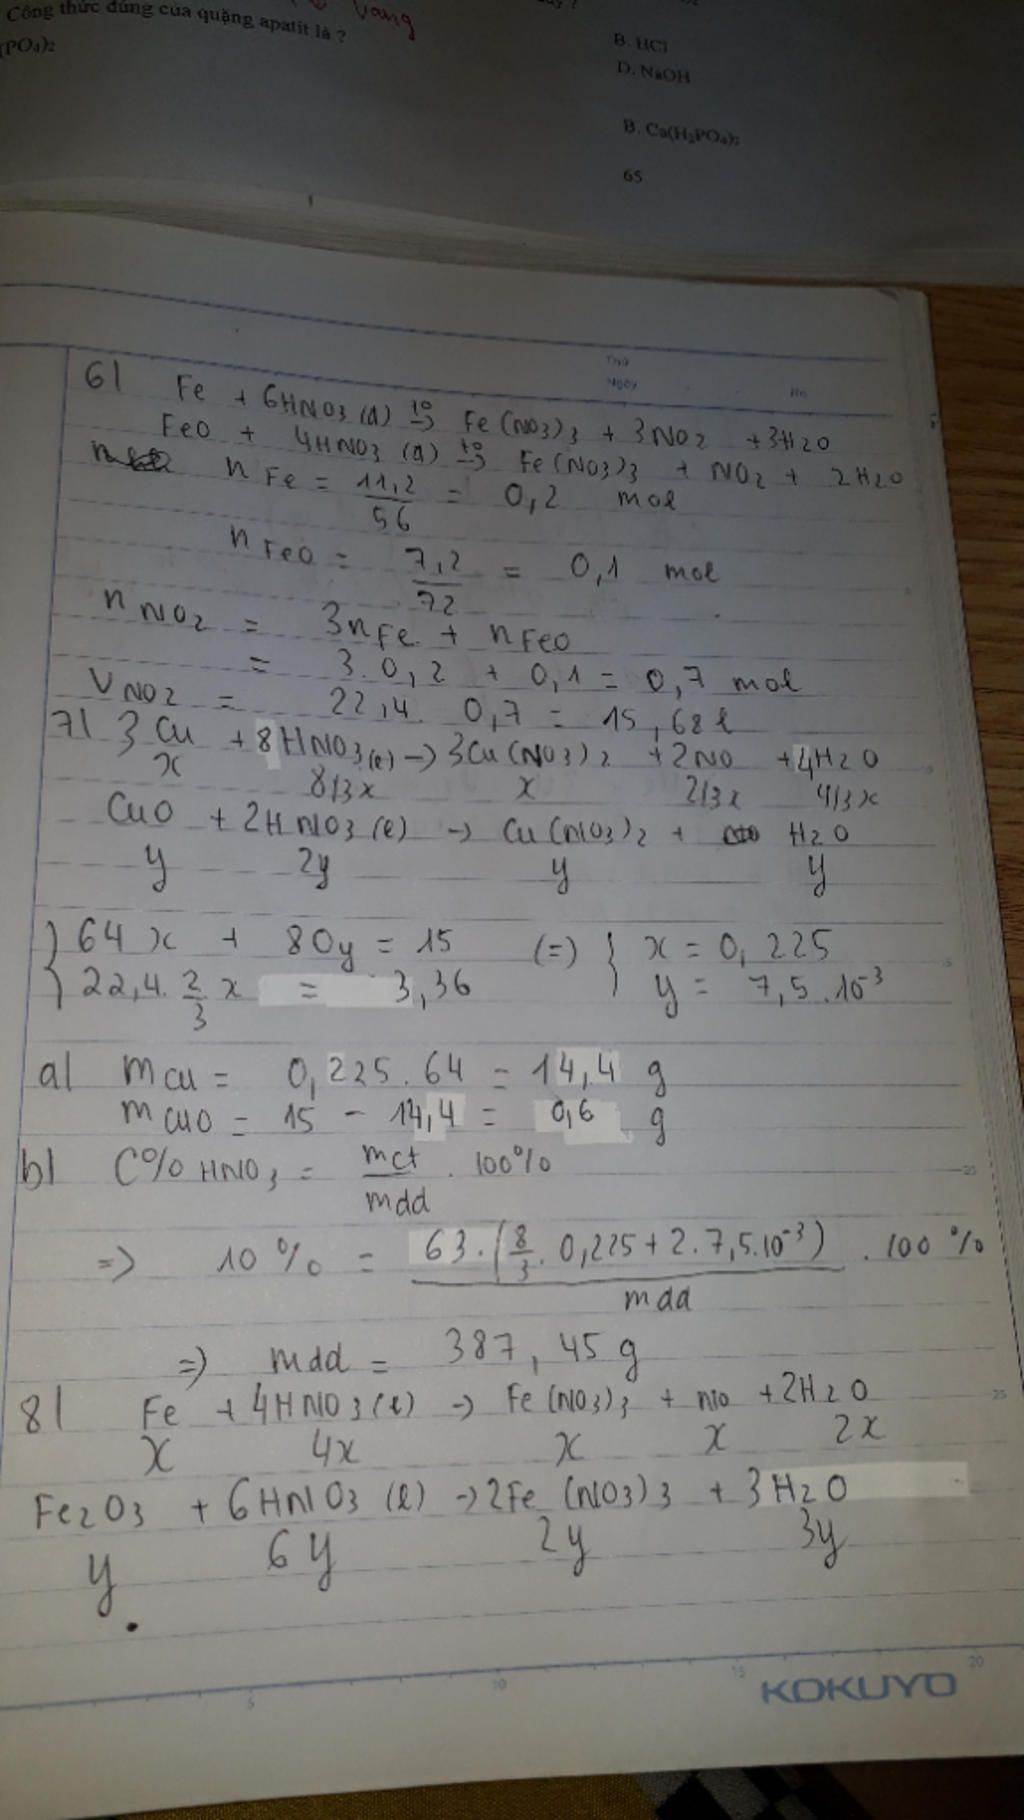 Công thức đúng của quặng apatit là ?
vang
(PO4)2
B. HCl
D. NaOH
B. Ca(H2PO4)2
65
Thứ
Ngày
No
6/ Fe + 6HNO3 (đ) to→ Fe(NO3)3 + 3NO2 + 3H2O
FeO + 4HNO3 (đ) to→ Fe(NO3)3 + NO2 + 2H2O
n Fe = 11,2/56 = 0,2 mol
n FeO = 7,2/72 = 0,1 mol
n NO2 = 3nFe + nFeO
= 3.0,2 + 0,1 = 0,7 mol
V NO2 = 22,4. 0,7 = 15,68 l
7/ 3Cu + 8HNO3(l) → 3Cu(NO3)2 + 2NO + 4H2O
x 8/3x x 2/3x 4/3x
CuO + 2HNO3 (l) → Cu(NO3)2 + H2O
y 2y y y
{ 64x + 80y = 15 (=) { x = 0,225
22,4. 2/3 x = 3,36 y = 7,5.10^-3
a/ mCu = 0,225.64 = 14,4 g
mCuO = 15 - 14,4 = 0,6 g
b/ C% HNO3 = mct/mdd . 100%
=> 10% = 63.(8/3. 0,225 + 2.7,5.10^-3)/mdd . 100%
=> mdd = 387,45 g
8/ Fe + 4HNO3(l) → Fe(NO3)3 + NO + 2H2O
x 4x x x 2x
Fe2O3 + 6HNO3 (l) → 2Fe(NO3)3 + 3H2O
y 6y 2y 3y
5 10 15 20
KOKUYO